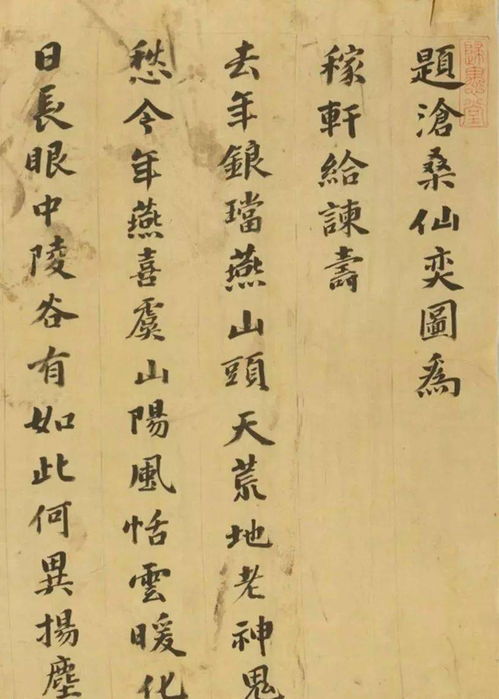 題滄桑仙奕圖爲
稼軒給諫壽
去年鋃璫燕山頭天荒地老神鬼
愁今年燕喜虞山陽風恬雲暖化
日長眼中陵谷有如此何異揚塵